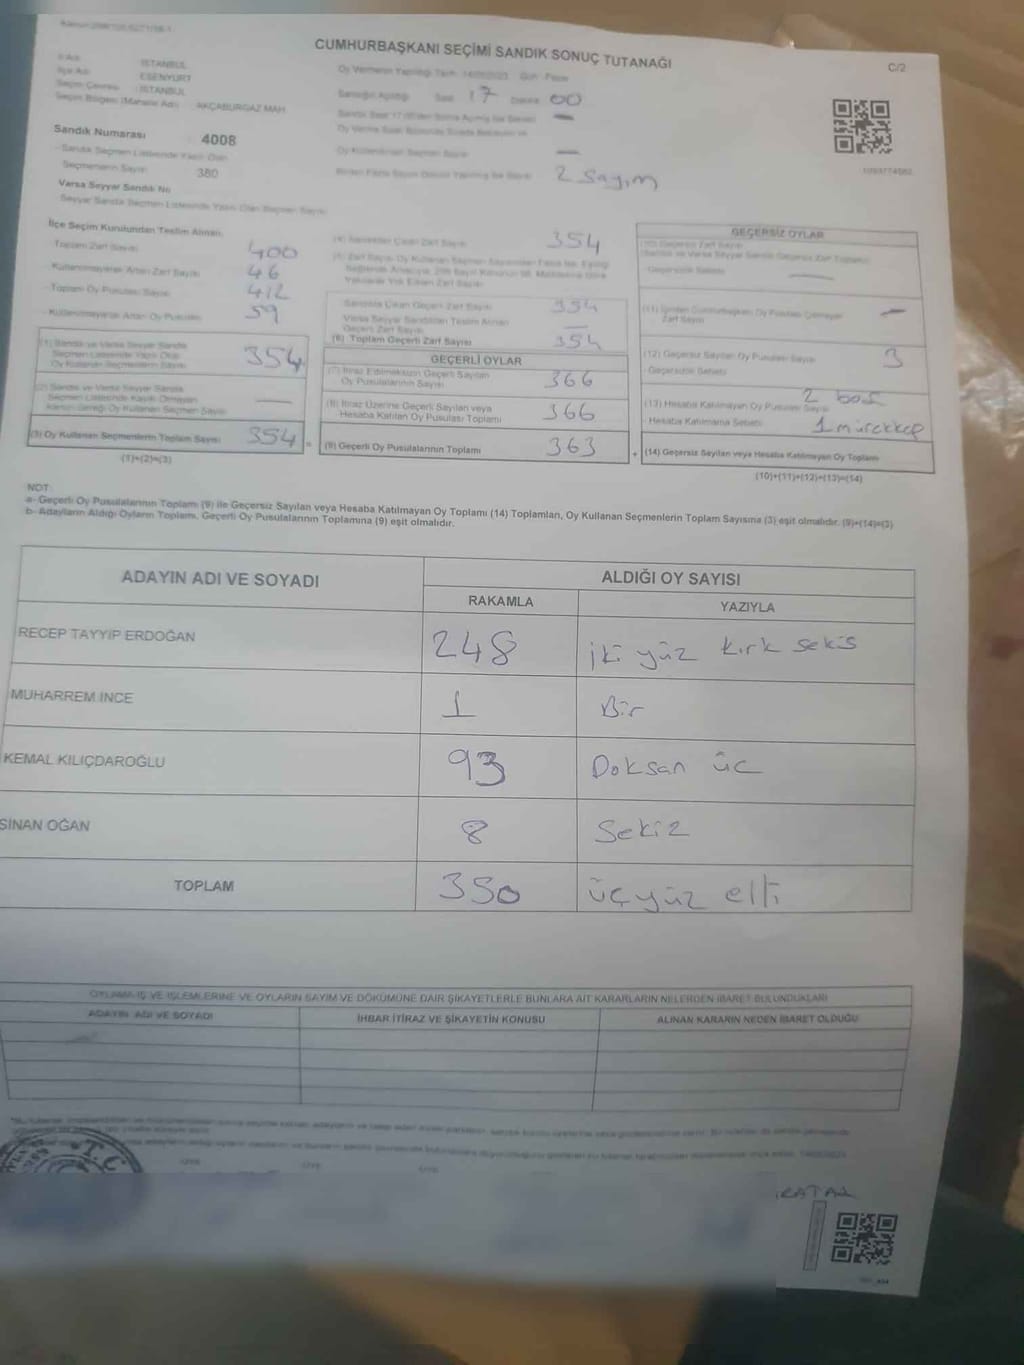 CUMHURBAŞKANI SEÇİMİ SANDIK SONUÇ TUTANAĞI
C/2
İSTANBUL
ESENYURT
İSTANBUL
Seçim Bölgesi (Mahalle Adı) : AKÇABURGAZ MAH.
Oy Vermenin Yapıldığı Tarih : 14/05/2023 Gün : Pazar
Sandığın Açıldığı Saat 17 Dakika 00
Sandık Numarası : 4008
- Sandık Seçmen Listesinde Yazılı Olan
Seçmenlerin Sayısı 380
Varsa Seyyar Sandık No
Seyyar Sandık Seçmen Listesinde Yazılı Olan Seçmen Sayısı
2 Sayım
İlçe Seçim Kurulundan Teslim Alınan:
- Toplam Zarf Sayısı 400
- Kullanılmayarak Artan Zarf Sayısı 46
- Toplam Oy Pusulası Sayısı 412
- Kullanılmayarak Artan Oy Pusulası 59
(1) Sandık ve Varsa Seyyar Sandık
Seçmen Listesinde Yazılı Olup
Oy Kullanan Seçmenlerin Sayısı 354
(2) Sandık ve Varsa Seyyar Sandık
Seçmen Listesinde Kaydı Olmayan
(3) Oy Kullanan Seçmenlerin Toplam Sayısı 354
(1)+(2)=(3)
(4) Sandıktan Çıkan Zarf Sayısı 354
Sandıkta Çıkan Geçerli Zarf Sayısı 354
Varsa Seyyar Sandıktan Teslim Alınan
Geçerli Zarf Sayısı
(6) Toplam Geçerli Zarf Sayısı 354
GEÇERLİ OYLAR
(7) İtiraz Edilmeksizin Geçerli Sayılan
Oy Pusulalarının Sayısı 366
(8) İtiraz Üzerine Geçerli Sayılan veya
Hesaba Katılan Oy Pusulası Toplamı 366
(9) Geçerli Oy Pusulalarının Toplamı 363
GEÇERSİZ OYLAR
(10) Geçersiz Zarf Sayısı
- Geçersizlik Sebebi
Zarf Sayısı
(12) Geçersiz Sayılan Oy Pusulası Sayısı 3
- Geçersizlik Sebebi
(13) Hesaba Katılmayan Oy Pusulası Sayısı 2 boş
- Hesaba Katılmama Sebebi 1 mürekkep
(14) Geçersiz Sayılan veya Hesaba Katılmayan Oy Toplamı
(10)+(11)+(12)+(13)=(14)
NOT:
a- Geçerli Oy Pusulalarının Toplamı (9) ile Geçersiz Sayılan veya Hesaba Katılmayan Oy Toplamı (14) Toplamları, Oy Kullanan Seçmenlerin Toplam Sayısına (3) eşit olmalıdır. (9)+(14)=(3)
b- Adayların Aldığı Oyların Toplamı, Geçerli Oy Pusulalarının Toplamına (9) eşit olmalıdır.
ADAYIN ADI VE SOYADI
ALDIĞI OY SAYISI
RAKAMLA YAZIYLA
RECEP TAYYİP ERDOĞAN 248 iki yüz kırk sekis
MUHARREM İNCE 1 Bir
KEMAL KILIÇDAROĞLU 93 Doksan üc
SİNAN OĞAN 8 Sekiz
TOPLAM 350 üçyüz elli
OYLAMA İŞ VE İŞLEMLERİNE VE OYLARIN SAYIM VE DÖKÜMÜNE DAİR ŞİKAYETLERLE BUNLARA AİT KARARLARIN NELERDEN İBARET BULUNDUKLARI
ADAYIN ADI VE SOYADI
İHBAR İTİRAZ VE ŞİKAYETİN KONUSU
ALINAN KARARIN NEDEN İBARET OLDUĞU
T.C.